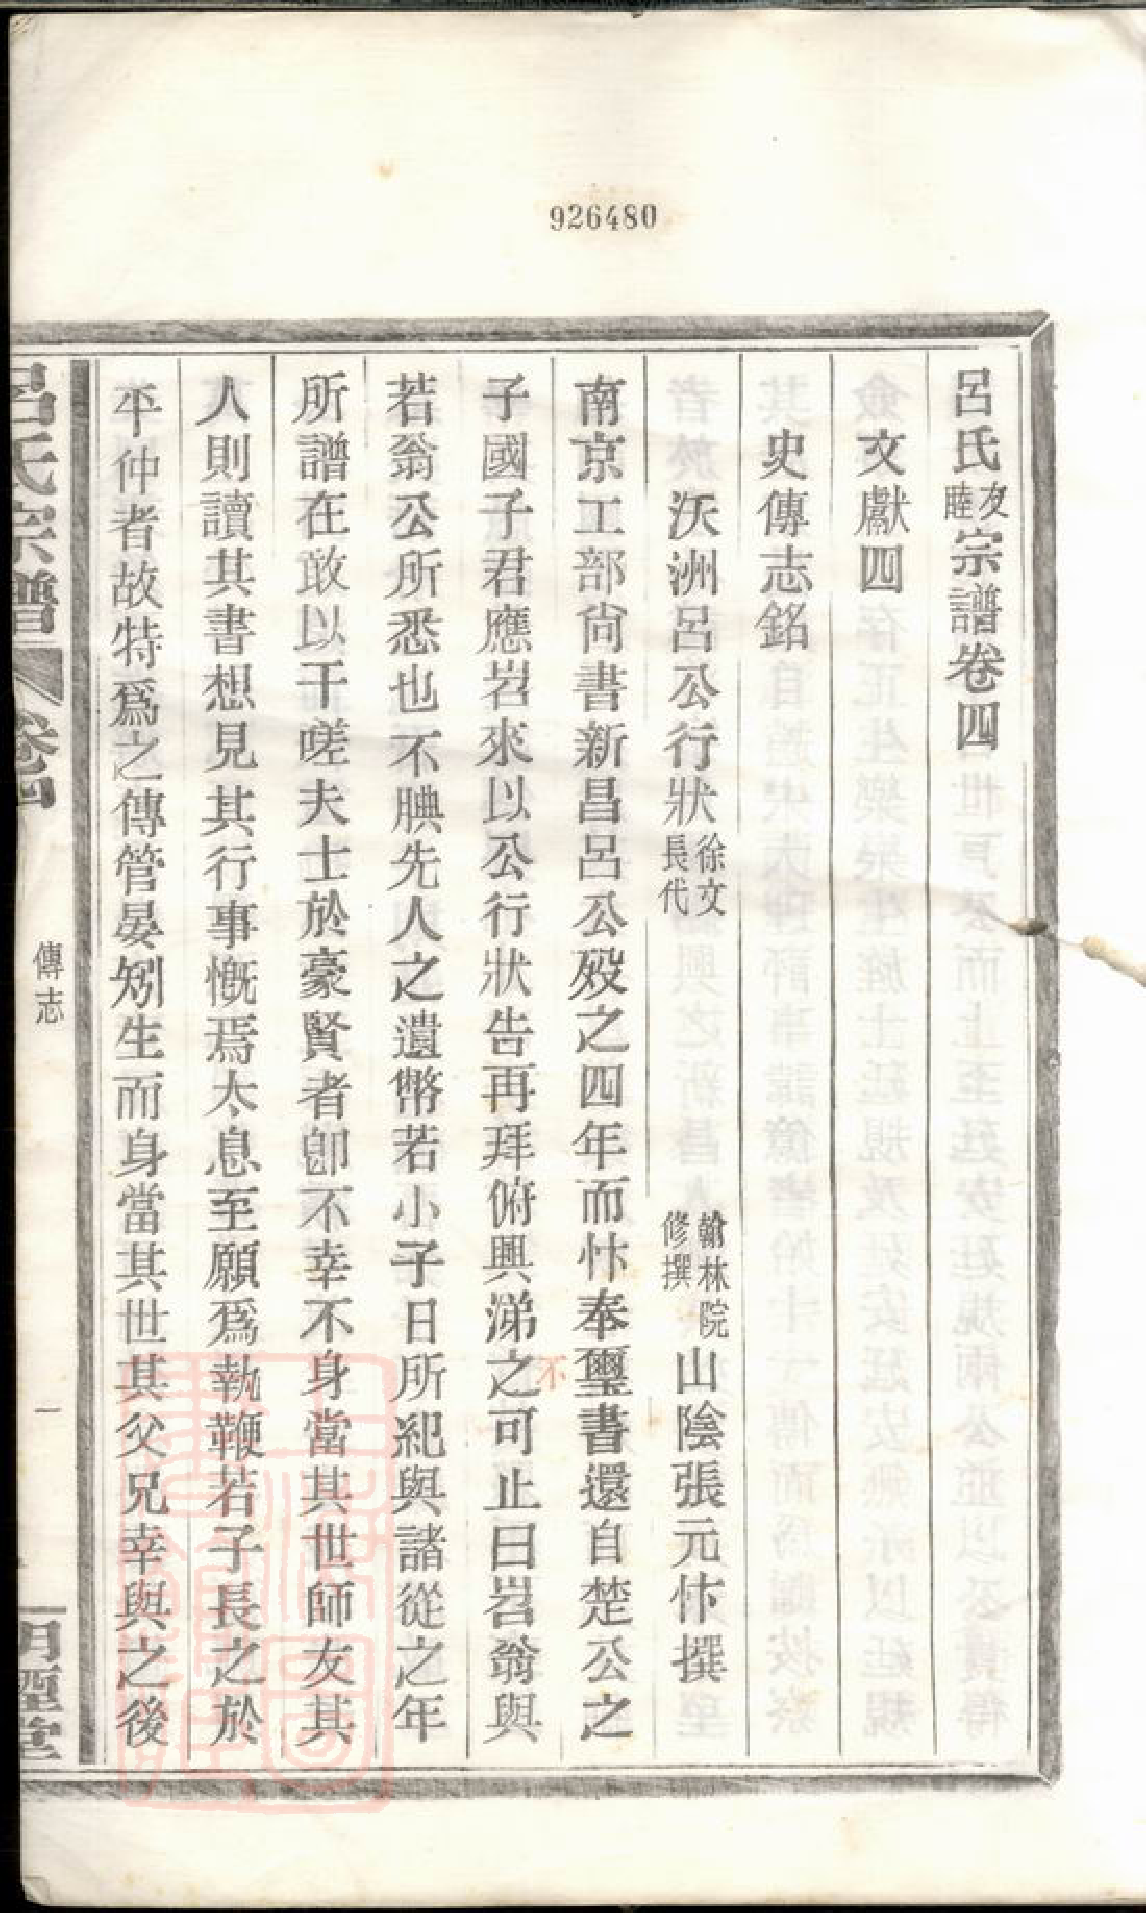 926480
呂氏友睦宗譜卷四
文獻四
史傳志銘
沃洲呂公行狀徐文長代 翰林院修撰山陰張元忭撰
南京工部尚書新昌呂公歿之四年而忭奉璽書還自楚公之
子國子君應岩來以公行狀告再拜俯興涕之可止曰岩翁與
不
若翁公所悉也不腆先人之遺幣若小子日所紀與諸從之年
所譜在敢以干嗟夫士於豪賢者卽不幸不身當其世師友其
人則讀其書想見其行事慨焉太息至願爲執鞭若子長之於
平仲者故特爲之傳管晏矧生而身當其世其父兄幸與之後
呂氏宗譜 卷四 傳志 一 明煙堂